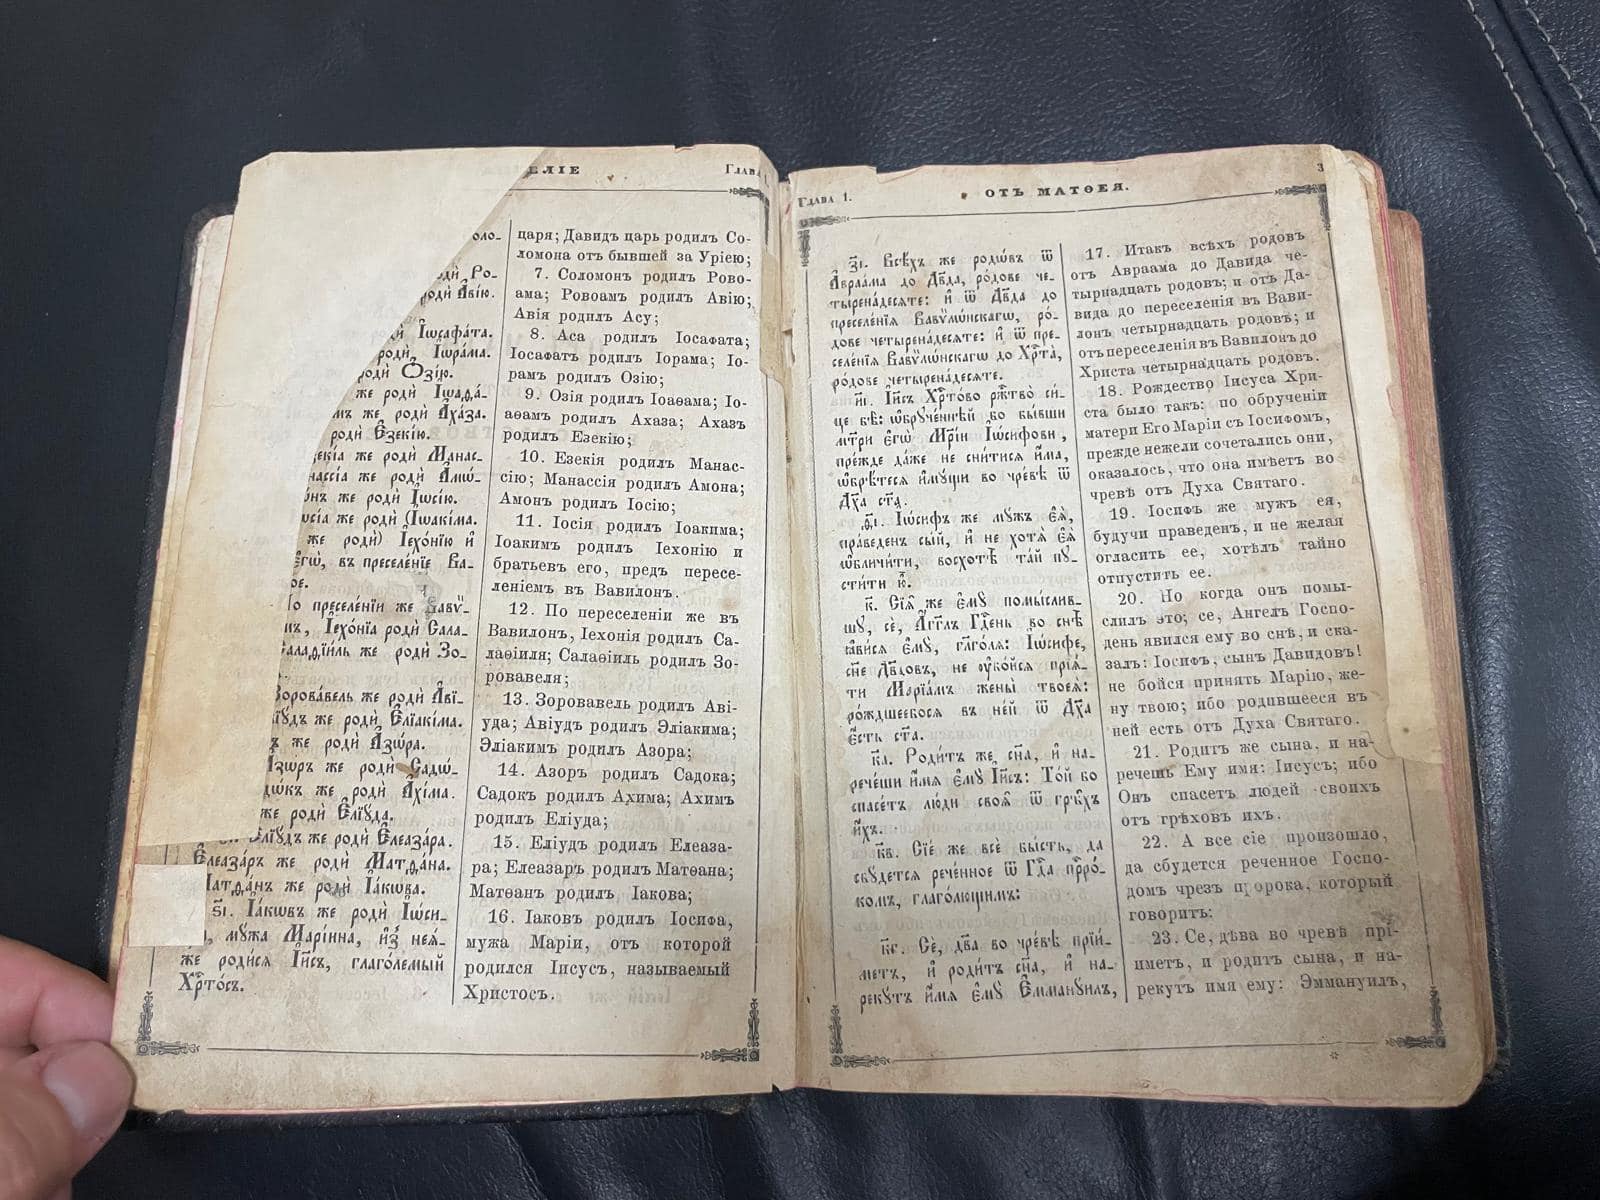 ЕЛІЕ
Глава
оло-
роди̑ Ро-
роди̑ А҆ві́ю.
роди̑ І҆ѡсафа́та.
роди̑ І҆ѡра́ма.
роди̑ Ѻ҆зі́ю.
же роди̑ І҆ѡаѳа́-
мъ же роди̑ А҆ха́за.
роди̑ Є҆зекі́ю.
зекі́а же роди̑ Манас-
насси́а же роди̑ А҆мѡ́-
ѡ́нъ же роди̑ І҆ѡсі́ю.
ѡсі́а же роди̑ (І҆ѡакі́ма.
же роди̑) І҆ехо́нїю и҆
є҆гѡ̀, въ преселе́нїе Ва-
ое.
По преселе́нїи же Вавѵ-
мъ, І҆ехо́нїа роди̑ Сала-
Салаѳїи́ль же роди̑ Зо-
Зорова́вель же роди̑ А҆вї-
їꙋ́дъ же роди̑ Є҆лїакі́ма.
ъ же роди̑ А҆зѡ́ра.
А҆зѡ́ръ же роди̑ Садѡ́-
дѡ́къ же роди̑ А҆хі́ма.
же роди̑ Є҆лїꙋ́да.
Є҆лїꙋ́дъ же роди̑ Є҆леаза́ра.
Є҆леаза́ръ же роди̑ Матѳа́на.
Матѳа́нъ же роди̑ І҆а́кѡва.
ѕ҃і. І҆а́кѡвъ же роди̑ І҆ѡ́си-
мꙋ́жа Марі́ина, и҆з̾ нея́-
же роди́сѧ І҆и҃съ, глаго́лемый
Хрⷭ҇то́съ.
царя; Давидъ царь родилъ Со-
ломона отъ бывшей за Урією;
7. Соломонъ родилъ Рово-
ама; Ровоамъ родилъ Авію;
Авія родилъ Асу;
8. Аса родилъ Іосафата;
Іосафатъ родилъ Іорама; Іо-
рамъ родилъ Озію;
9. Озія родилъ Іоаѳама; Іо-
аѳамъ родилъ Ахаза; Ахазъ
родилъ Езекію;
10. Езекія родилъ Манас-
сію; Манассія родилъ Амона;
Амонъ родилъ Іосію;
11. Іосія родилъ Іоакима;
Іоакимъ родилъ Іехонію и
братьевъ его, предъ пересе-
леніемъ въ Вавилонъ.
12. По переселеніи же въ
Вавилонъ, Іехонія родилъ Са-
лаѳіиля; Салаѳіиль родилъ Зо-
ровавеля;
13. Зоровавель родилъ Аві-
уда; Авіудъ родилъ Эліакима;
Эліакимъ родилъ Азора;
14. Азоръ родилъ Садока;
Садокъ родилъ Ахима; Ахимъ
родилъ Еліуда;
15. Еліудъ родилъ Елеаза-
ра; Елеазаръ родилъ Матѳана;
Матѳанъ родилъ Іакова;
16. Іаковъ родилъ Іосифа,
мужа Маріи, отъ которой
родился Іисусъ, называемый
Христосъ.
Глава 1. ОТЪ МАТѲЕЯ. 3
з҃і. Всѣ́хъ же родѡ́въ ѿ
А҆враа́ма до Дв҃да, ро́дове че-
тыренадесѧ́те: и҆ ѿ Дв҃да до
преселе́нїѧ Вавѷлѡ́нскагѡ, ро́-
дове четыренадесѧ́те: и҆ ѿ пре-
селе́нїѧ Вавѷлѡ́нскагѡ до Хрⷭ҇та̀,
ро́дове четыренадесѧ́те.
и҃і. І҆и҃съ Хрⷭ҇то́во рж҃тво̀ си́-
це бѣ̀: ѡ҆брꙋче́ннѣй бо бы́вши
мт҃ри є҆гѡ̀ Мр҃і́и І҆ѡ́сифови,
пре́жде да́же не сни́тисѧ и҆́ма,
ѡ҆брѣ́тесѧ и҆мꙋ́щи во чре́вѣ ѿ
Дх҃а ст҃а.
ѳ҃і. І҆ѡ́сифъ же мꙋ́жъ є҆ѧ̀,
пра́веденъ сы́й, и҆ не хотѧ̀ є҆ѧ̀
ѡ҆бличи́ти, восхотѣ̀ та́й пꙋ-
сти́ти ю҆̀.
к҃. Сїѧ̑ же є҆мꙋ̀ помы́слив-
шꙋ, сѐ, А҆́гг҃лъ Гдⷭ҇ень во снѣ̀
ꙗ҆ви́сѧ є҆мꙋ̀, глаго́лѧ: І҆ѡ́сифе,
сн҃е Дв҃довъ, не ᲂу҆бо́йсѧ прїѧ́-
ти Марїа́мъ жены̀ твоеѧ̀:
ро́ждшеебосѧ въ не́й ѿ Дх҃а
є҆́сть ст҃а.
к҃а. Роди́тъ же сн҃а, и҆ на-
рече́ши и҆́мѧ є҆мꙋ̀ І҆и҃съ: То́й бо
спасе́тъ лю́ди своѧ̑ ѿ грѣ̑хъ
и҆́хъ.
к҃в. Сїе́ же всѐ бы́сть, да
сбꙋ́детсѧ рече́нное ѿ Гдⷭ҇а прⷪ҇ро́-
комъ, глаго́лющимъ:
к҃г. Сѐ, дв҃а во чре́вѣ прїи́-
метъ, и҆ роди́тъ сн҃а, и҆ на-
рекꙋ́тъ и҆́мѧ є҆мꙋ̀ Є҆ммані́илъ,
17. Итакъ всѣхъ родовъ
отъ Авраама до Давида че-
тырнадцать родовъ; и отъ Да-
вида до переселенія въ Вави-
лонъ четырнадцать родовъ; и
отъ переселенія въ Вавилонъ до
Христа четырнадцать родовъ.
18. Рождество Іисуса Хри-
ста было такъ: по обрученіи
матери Его Маріи съ Іосифомъ,
прежде нежели сочетались они,
оказалось, что она имѣетъ во
чревѣ отъ Духа Святаго.
19. Іосифъ же мужъ ея,
будучи праведенъ, и не желая
огласить ее, хотѣлъ тайно
отпустить ее.
20. Но когда онъ помы-
слилъ это; се, Ангелъ Госпо-
день явился ему во снѣ, и ска-
залъ: Іосифъ, сынъ Давидовъ!
не бойся принять Марію, же-
ну твою; ибо родившееся въ
ней есть отъ Духа Святаго.
21. Родитъ же сына, и на-
речешь Ему имя: Іисусъ; ибо
Онъ спасетъ людей своихъ
отъ грѣховъ ихъ.
22. А все сіе произошло,
да сбудется реченное Госпо-
домъ чрезъ пророка, который
говоритъ:
23. Се, дѣва во чревѣ прі-
иметъ, и родитъ сына, и на-
рекутъ имя ему: Эммануилъ,